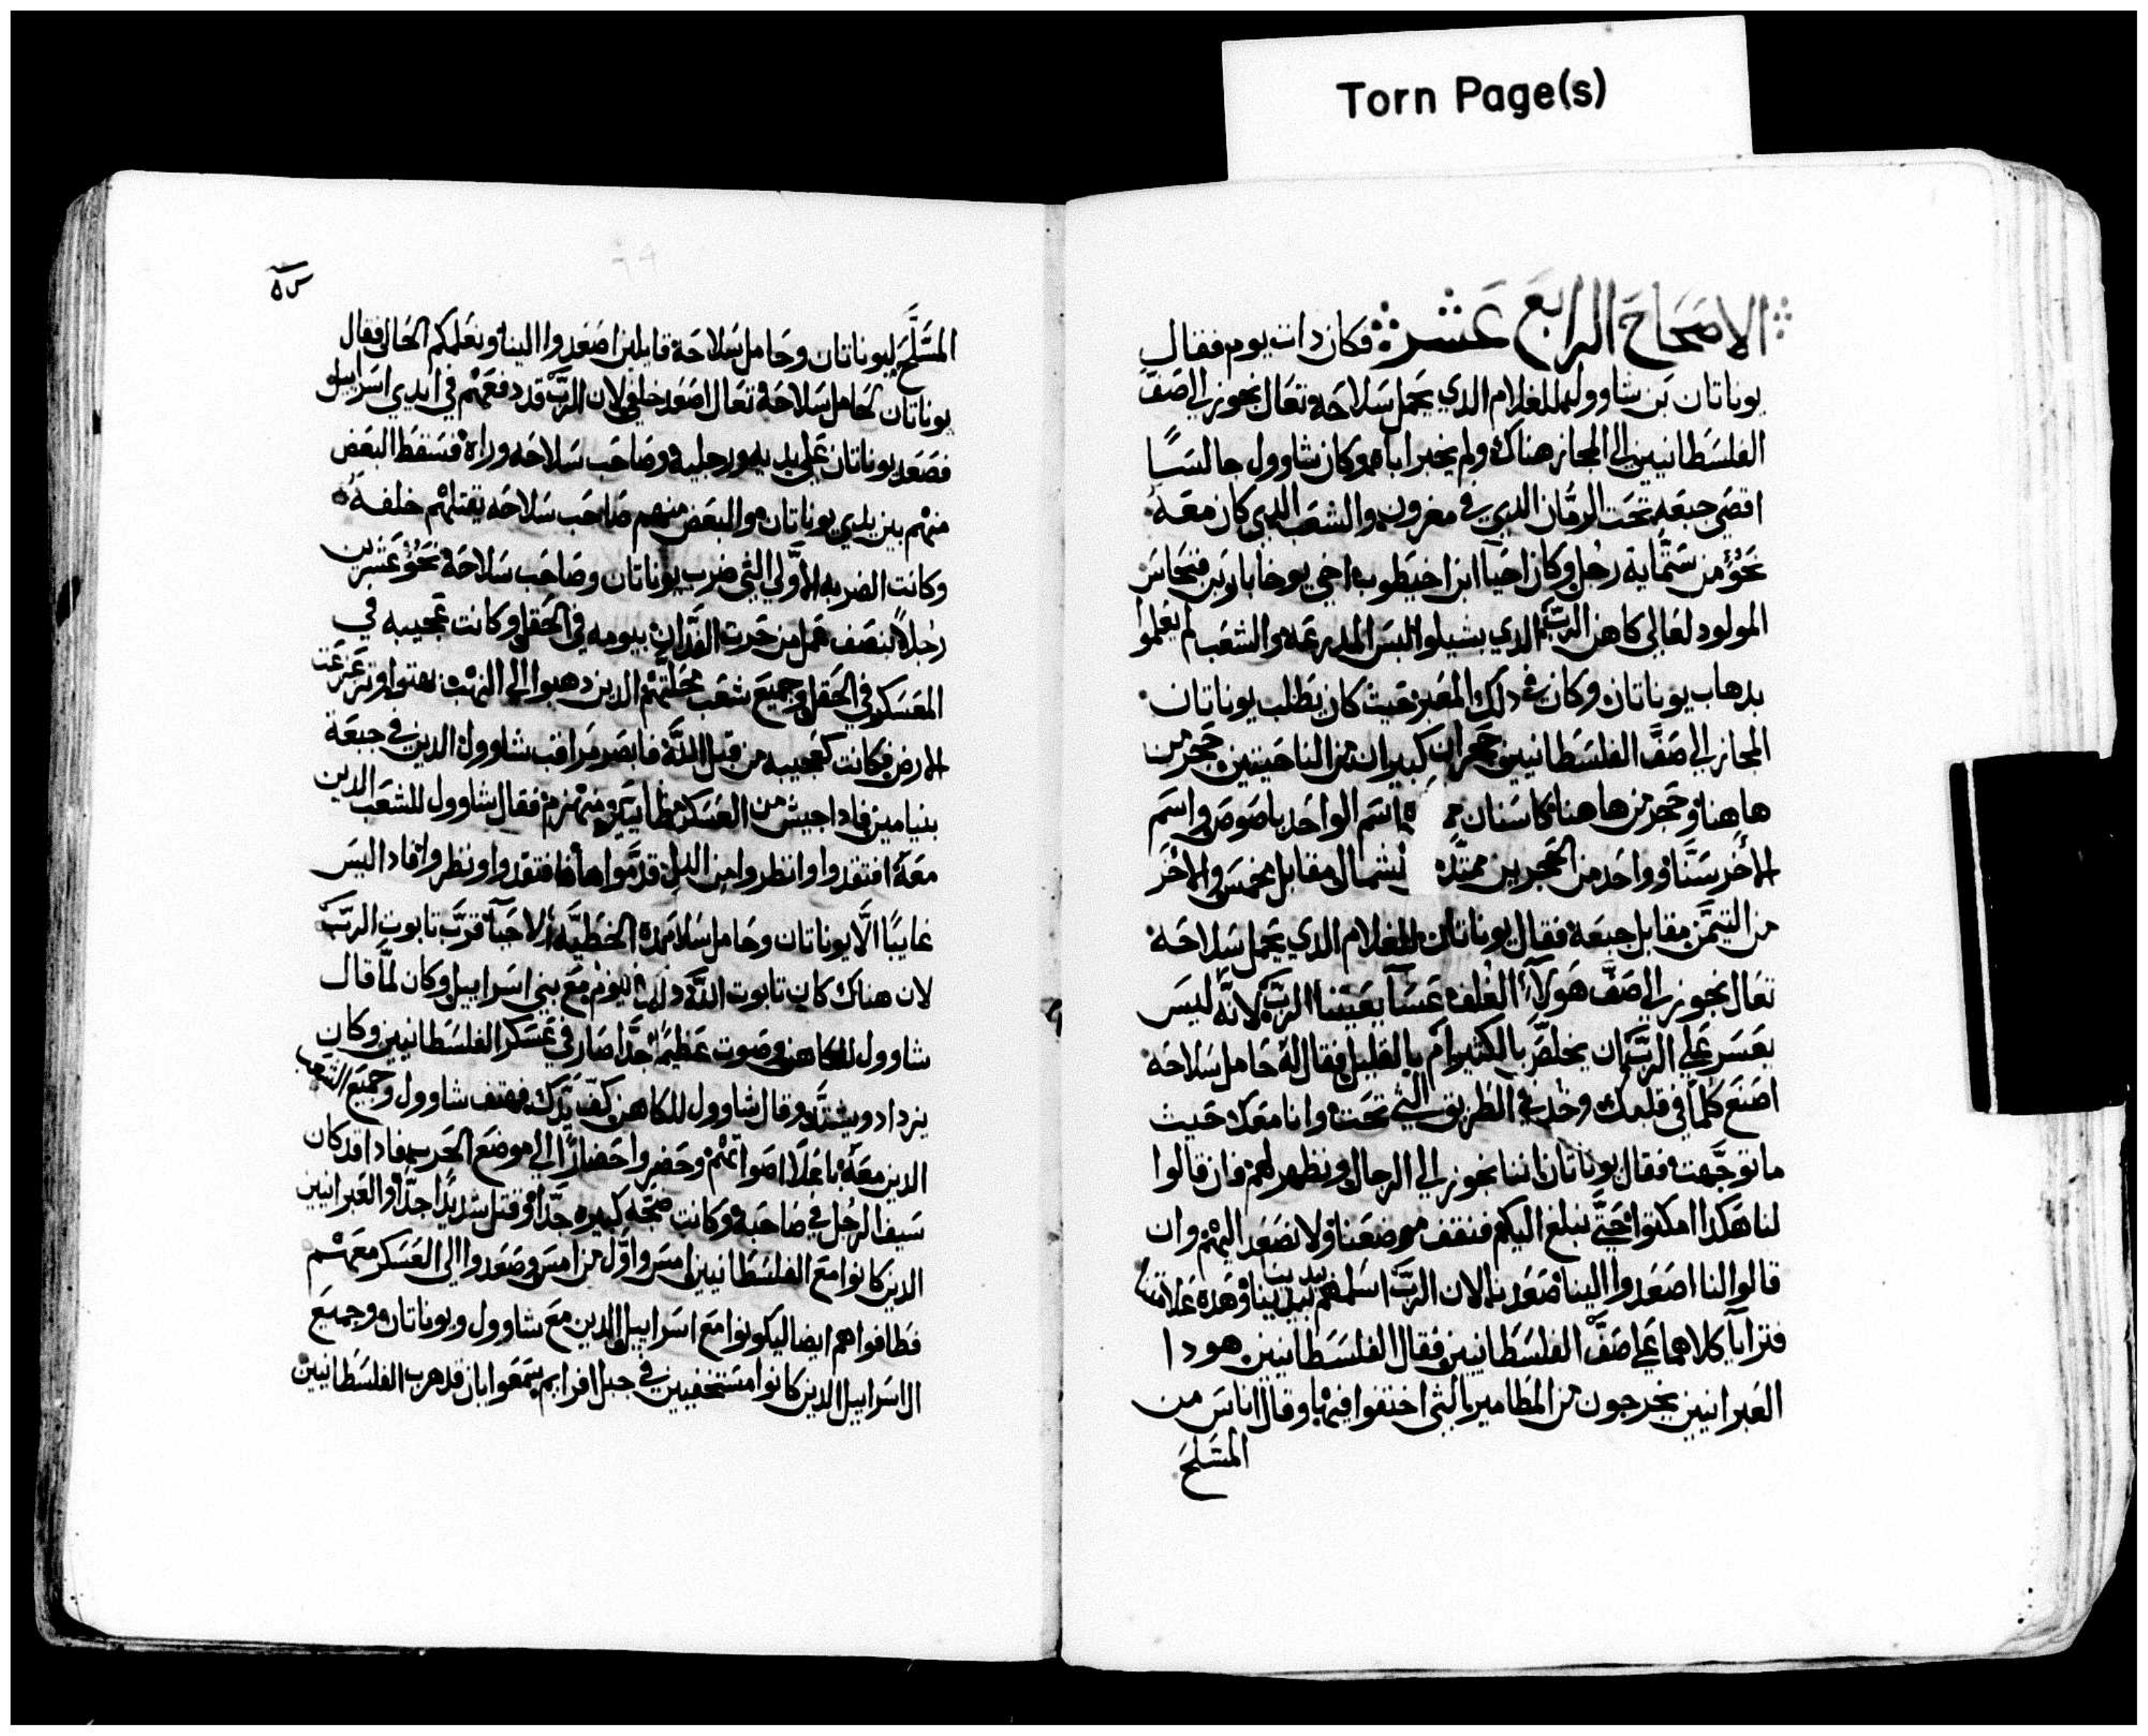 Torn Page(s)
الاصحاح الرابع عشر فكان دات يوم فقال
يوناتان بن شاوول للغلام الدي يحمل سلاحه تعال نجوز الي صف
الفلسطانيين الي المجاز هناك ولم يخبر اباه وكان شاوول جالسًا
اقصي جبعه تحت الرمان الدي في مغرون والشعب الدي كان معه
نحو من ستماية رجل وكان احيا ابن اخيطوب اخي يوخاباد بن فنحاس
المولود لعالي كاهن الرب الدي بشيلوا لبس المدرعه والشعب لم يعلموا
بدهاب يوناتان وكان في دلك المعبر حيت كان يطلب يوناتان
المجاز الي صف الفلسطانيين حجران كبيران من الناحيتين حجر من
هاهنا وحجر من هاهنا كاسنان اسم الواحد باصوص واسم
الاخر سنا وواحد من الحجرين ممتد لشمال مقابل مخمس والاخر
من التيمن مقابل جبعه فقال يوناتان للغلام الدي يحمل سلاحه
تعال نجوز الي صف هولاء الغلف عسا يعيننا الرب لانه ليس
بعسر علي الرب ان يخلص بالكثير ام بالقليل فقال له حامل سلاحه
اصنع كلما في قلبك وخد في الطريق التي تحب وانا معك حيث
ما توجهت فقال يوناتان اننا نجوز الي الرجال ونظهر لهم فان قالوا
لنا هكدا امكتوا حتي نبلغ اليكم فنقف موضعنا ولا نصعد اليهم وان
قالوا لنا اصعدوا الينا فصعدنا لان الرب اسلمهم بيدينا وهده علامتنا
فترايا كلاهما علي صف الفلسطانيين فقال الفلسطانيين هودا
العبرانيين يخرجون من المطامير التي اختفوا فيها وقال اناس من
المسلح
المسلح ليوناتان وحامل سلاحه قايلين اصعدوا الينا ونعلمكم الحال فقال
يوناتان لحامل سلاحه تعال اصعد خلفي لان الرب قد دفعهم في ايدي اسراييل
فصعد يوناتان علي يديه ورجليه وصاحب سلاحه وراه فسقط البعض
منهم بين يدي يوناتان والبعض منهم صاحب سلاحه يقتلهم خلفه
وكانت الضربه الاولي التي ضرب يوناتان وصاحب سلاحه نحو عشرين
رجلاً بنصف عمل من حرت الفدان بيومه في الحقل وكانت عجيبه في
المعسكر في الحقل وجميع شعب محلتهم الدين دهبوا الي النهب بهتوا وتزعزعت
الارض فكانت كعجيبه من قبل الله فابصر مراقب شاوول الدين في جبعة
بنيامين فادا جيش من العسكر منهزم فقال شاوول للشعب الدين
معه افتقدوا وانظروا من الدي قدموا هاهنا فافتقدوا ونظروا فادا ليس
غايبًا الا يوناتان وحامل سلاحه لاحيا قرب تابوت الرب
لان هناك كان تابوت الله دلك اليوم مع بني اسراييل وكان لما قال
شاوول للكاهن وصوت عظيم جدا صار في عسكر الفلسطانيين وكان
يزداد ويشتد وقال شاوول للكاهن كف يدك فهتف شاوول وجميع الشعب
الدين معه باعلا اصواتهم وحضروا الي موضع الحرب فادا قد كان
سيف الرجل في صاحبه وكانت ضجه كبيره جدا وقتل شديدا جدا والعبرانيين
الدين كانوا مع الفلسطانيين امس واول من امس وصعدوا الي العسكر معهم
فطافوا هم ايضا ليكونوا مع اسراييل الدين مع شاوول ويوناتان وجميع
الاسراييل الدين كانوا مستخفيين في جبل افرايم سمعوا بان قد هرب الفلسطانيين